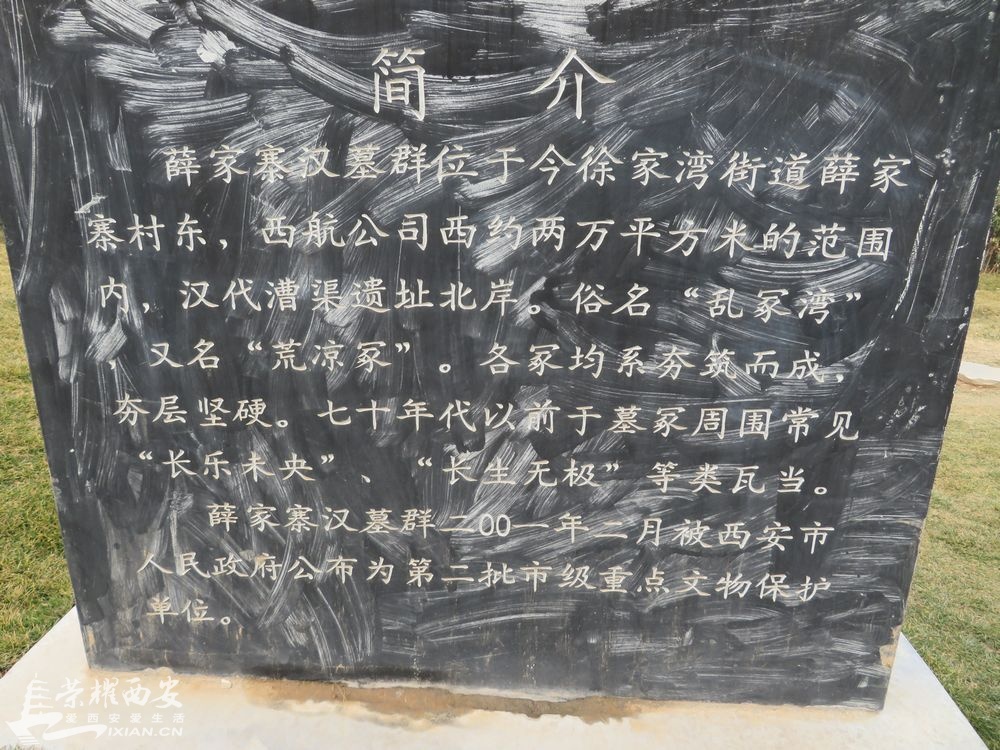 简 介
薛家寨汉墓群位于今徐家湾街道薛家
寨村东，西航公司西约两万平方米的范围
内，汉代漕渠遗址北岸。俗名“乱冢湾”
，又名“荒凉冢”。各冢均系夯筑而成，
夯层坚硬。七十年代以前于墓冢周围常见
“长乐未央”、“长生无极”等类瓦当。
薛家寨汉墓群二00一年二月被西安市
人民政府公布为第二批市级重点文物保护
单位。
荣耀西安
爱西安爱生活
IXIAN.CN